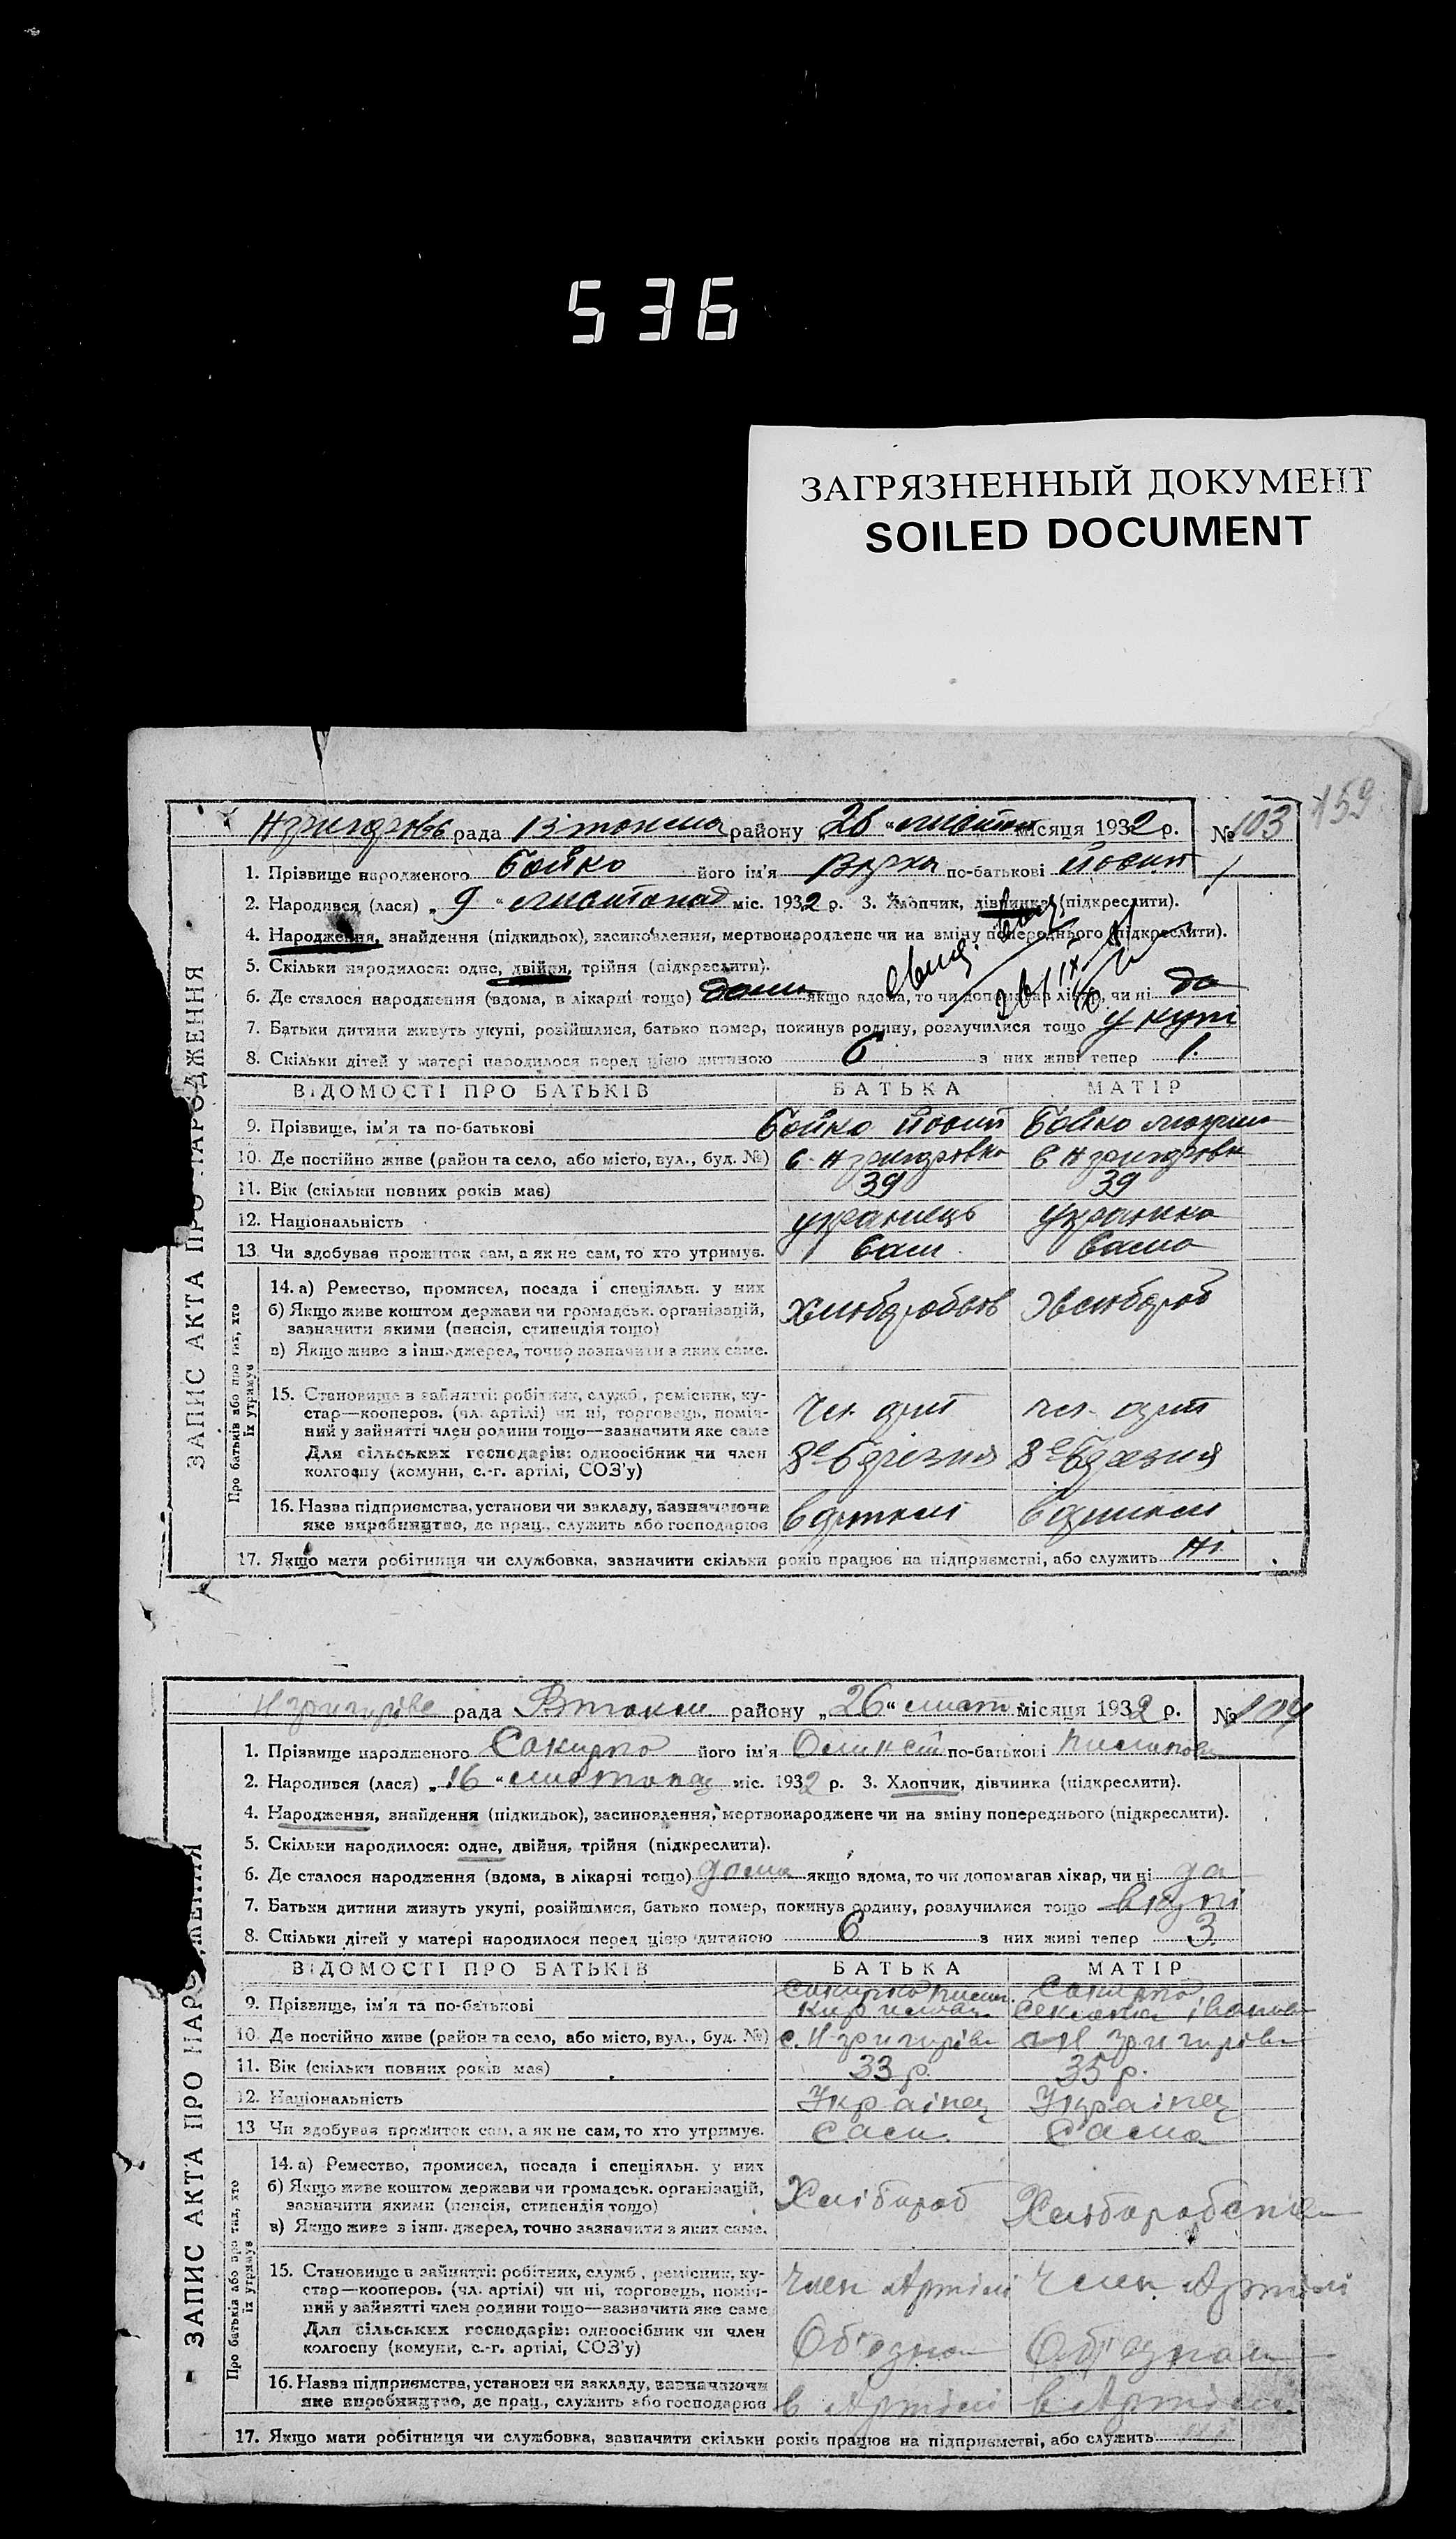 536
ЗАГРЯЗНЕННЫЙ ДОКУМЕНТ
SOILED DOCUMENT
159
рада району „26“ місяця 1932 р. № 103
1. Прізвище народженого Бойко його ім'я по-батькові Йосип
2. Народився (лася) „9“ листопад міс. 1932 р. 3. Хлопчик, дівчинка (підкреслити).
4. Народження, знайдення (підкидьок), засиновлення, мертвонароджене чи на зміну попереднього (підкреслити).
5. Скільки народилося: одне, двійня, трійня (підкреслити).
6. Де сталося народження (вдома, в лікарні тощо) дома якщо вдома, то чи допомагав лікар, чи ні да
7. Батьки дитини живуть укупі, розійшлися, батько помер, покинув родину, розлучилися тощо у купі
8. Скільки дітей у матері народилося перед цією дитиною 6 з них живі тепер 1.
ВІДОМОСТІ ПРО БАТЬКІВ БАТЬКА МАТІР
9. Прізвище, ім'я та по-батькові Бойко Йосип Бойко
10. Де постійно живе (район та село, або місто, вул., буд. №)
11. Вік (скільки повних років має) 39 39
12. Національність українець українка
13. Чи здобуває прожиток сам, а як не сам, то хто утримує. сам сама
14. а) Ремество, промисел, посада і спеціяльн. у них
б) Якщо живе коштом держави чи громадськ. організацій,
зазначити якими (пенсія, стипендія тощо)
в) Якщо живе з інш. джерел, точно зазначити з яких саме.
15. Становище в зайнятті: робітник, служб., ремісник, ку-
стар—кооперов. (чл. артілі) чи ні, торговець, поміч-
ний у зайнятті член родини тощо—зазначити яке саме
Для сільських господарів: одноосібник чи член
колгоспу (комуни, с.-г. артілі, СОЗ'у)
8е березня 8е березня
16. Назва підприємства, установи чи закладу, зазначаючи
яке виробництво, де прац., служить або господарює
17. Якщо мати робітниця чи службовка, зазначити скільки років працює на підприємстві, або служить ні
ЗАПИС АКТА ПРО НАРОДЖЕННЯ
Про батьків або про тих, хто їх утримує
рада району „26“ лист місяця 1932 р. № 104
1. Прізвище народженого його ім'я по-батькові
2. Народився (лася) „16“ листопад міс. 1932 р. 3. Хлопчик, дівчинка (підкреслити).
4. Народження, знайдення (підкидьок), засиновлення, мертвонароджене чи на зміну попереднього (підкреслити).
5. Скільки народилося: одне, двійня, трійня (підкреслити).
6. Де сталося народження (вдома, в лікарні тощо) дома якщо вдома, то чи допомагав лікар, чи ні да
7. Батьки дитини живуть укупі, розійшлися, батько помер, покинув родину, розлучилися тощо вкупі
8. Скільки дітей у матері народилося перед цією дитиною 6 з них живі тепер 3.
ВІДОМОСТІ ПРО БАТЬКІВ БАТЬКА МАТІР
9. Прізвище, ім'я та по-батькові
10. Де постійно живе (район та село, або місто, вул., буд. №)
11. Вік (скільки повних років має) 33 р. 35 р.
12. Національність Українец Українец
13. Чи здобуває прожиток сам, а як не сам, то хто утримує. Сам Сама
14. а) Ремество, промисел, посада і спеціяльн. у них
б) Якщо живе коштом держави чи громадськ. організацій,
зазначити якими (пенсія, стипендія тощо)
в) Якщо живе з інш. джерел, точно зазначити з яких саме.
15. Становище в зайнятті: робітник, служб., ремісник, ку-
стар—кооперов. (чл. артілі) чи ні, торговець, поміч-
ний у зайнятті член родини тощо—зазначити яке саме
Член Артілі Член Артілі
Для сільських господарів: одноосібник чи член
колгоспу (комуни, с.-г. артілі, СОЗ'у)
16. Назва підприємства, установи чи закладу, зазначаючи
яке виробництво, де прац., служить або господарює
в Артілі в Артілі
17. Якщо мати робітниця чи службовка, зазначити скільки років працює на підприємстві, або служить
ЗАПИС АКТА ПРО НАРОДЖЕННЯ
Про батьків або про тих, хто їх утримує